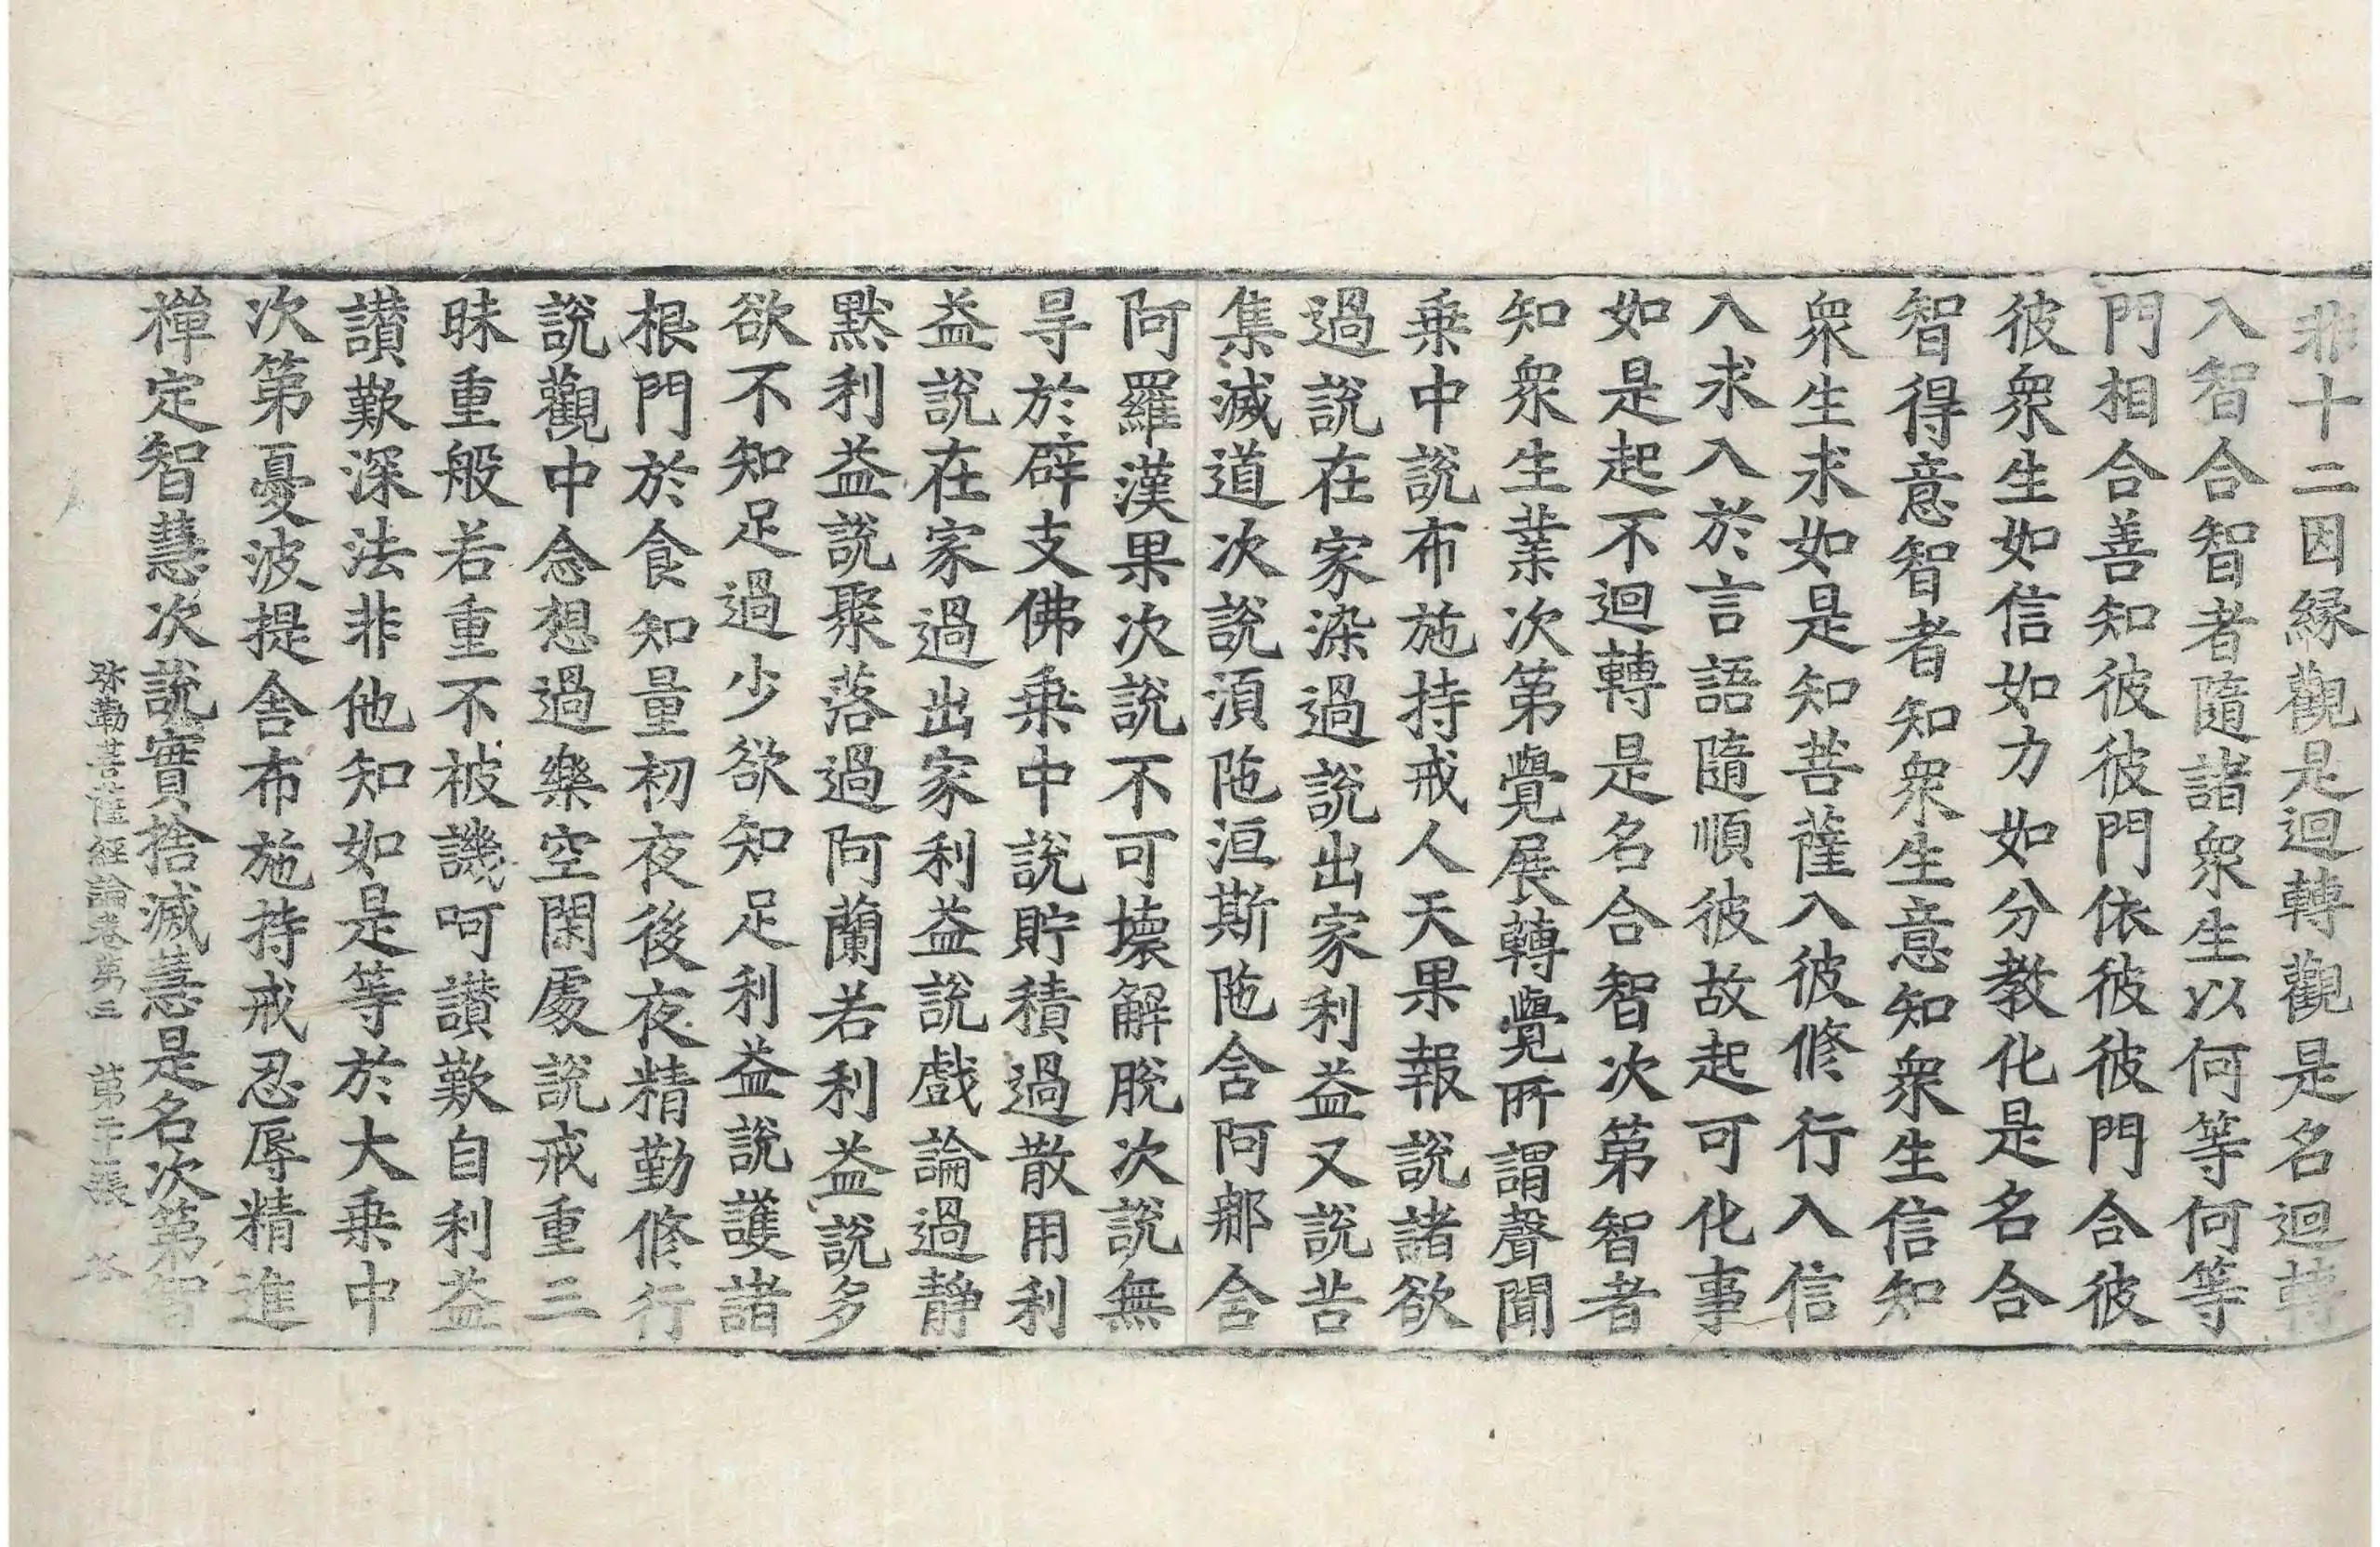 非十二因緣觀是迴轉觀是名迴轉
入智合智者隨諸衆生以何等何等
門相合善知彼彼門依彼彼門合彼
彼衆生如信如力如分教化是名合
智得意智者知衆生意知衆生信知
衆生求如是知菩薩入彼修行入信
入求入於言語隨順彼故起可化事
如是起不迴轉是名合智次第智者
知衆生業次第覺展轉覺所謂聲聞
乗中說布施持戒人天果報說諸欲
過說在家染過說出家利益又說苦
集滅道次說湏陁洹斯陁含阿那含
阿羅漢果次說不可壞解脫次說無
㝵於辟支佛乗中說貯積過散用利
益說在家過出家利益說戲論過静
默利益說聚落過阿蘭若利益說多
欲不知足過少欲知足利益說護諸
根門於食知量初夜後夜精勤修行
說觀中念想過樂空閑處說戒重三
昧重般若重不被譏呵讃歎自利益
讃歎深法非他知如是等於大乗中
次第憂波提舍布施持戒忍辱精進
禪定智慧次說實捨滅慧是名次第智
弥勒菩薩經論卷第三 第二十張